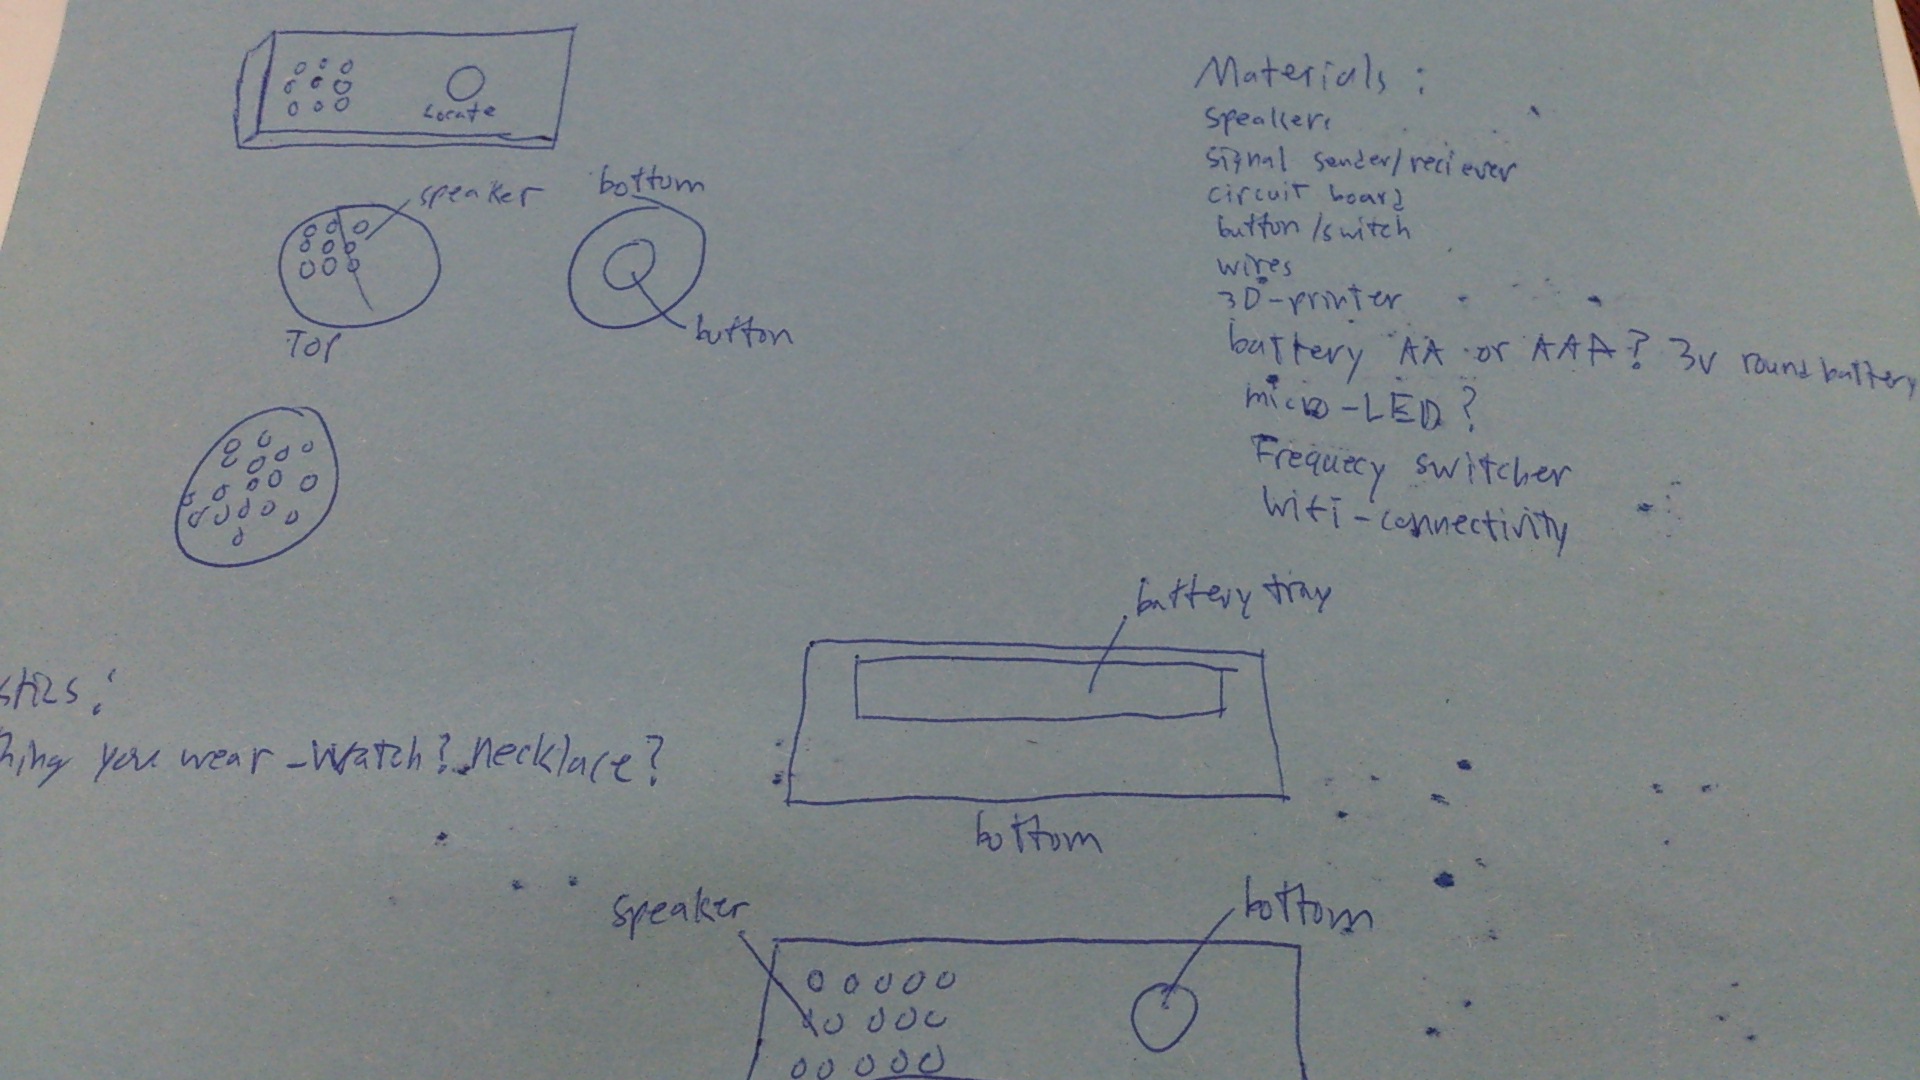 Locate
speaker
bottom
Top
button
Materials:
speakers
signal sender/reciever
circuit board
button/switch
wires
3D-printer
battery AA or AAA? 3v round battery
micro-LED?
Frequecy switcher
Wifi-connectivity
battery tray
bottom
you wear - Watch? Necklace?
speaker
bottom